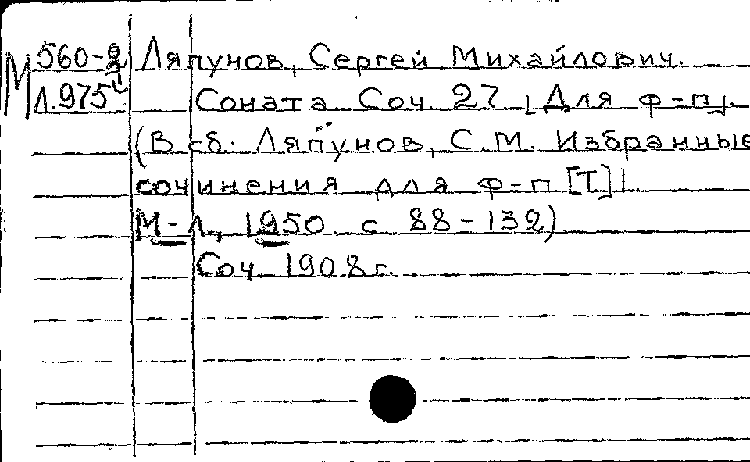 М 560-2 Ляпунов, Сергей Михайлович.
Л.975 Соната Соч. 27 [Для ф=п].
(В сб. Ляпунов, С.М. Избранные
сочинения для ф=п [Т] I
М-Л., 1950 с 88-132)
Соч 1908 г.